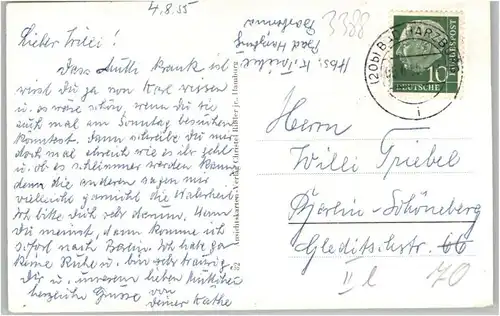 4.8.55
Lieber Willi!
Dass Mutti krank ist
wirst du ja von Karl wissen
u. es wäre schön, wenn du sie
auch mal am Sonntag besuchen
könntest. Dann schreibe du mir
doch mal ehrlich wie es ihr geht
u. ob es schlimmer werden kann,
denn die anderen sagen mir
vielleicht garnicht die Wahrheit.
Ich bitte dich sehr darum. Wenn
du meinst, dann komme ich
sofort nach Berlin. Ich habe ja
keine Ruhe u. bin sehr traurig.
Dir u. unserem lieben Muttchen
herzliche Grüsse von
deiner Käthe
3388
Abs: K. Triebel
Bad Harzburg
32 Ansichtskarten-Verlag Christel Bibler jr., Hamburg
(20b) BAD HARZB
i
10
DEUTSCHE
BUNDESPOST
Herrn
Willi Triebel
Berlin-Schöneberg
Gleditschstr. 66
II l
70